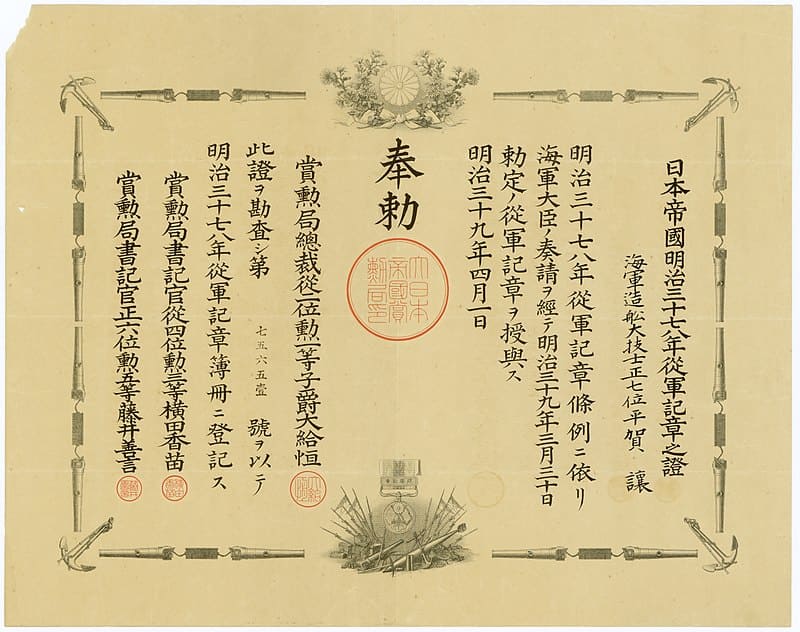 日本帝國明治三十七八年從軍記章之證
海軍造舩大技士正七位平賀 讓
明治三十七八年從軍記章條例ニ依リ
海軍大臣ノ奏請ヲ經テ明治三十九年三月三十日
勅定ノ從軍記章ヲ授與ス
明治三十九年四月一日
奉勅
大日本
帝國賞
勲局印
賞勲局總裁從二位勲一等子爵大給恒
此證ヲ勘査シ第 七五六五壹 號ヲ以テ
明治三十七八年從軍記章簿冊ニ登記ス
賞勲局書記官從四位勲三等横田香苗
賞勲局書記官正六位勲五等藤井善言